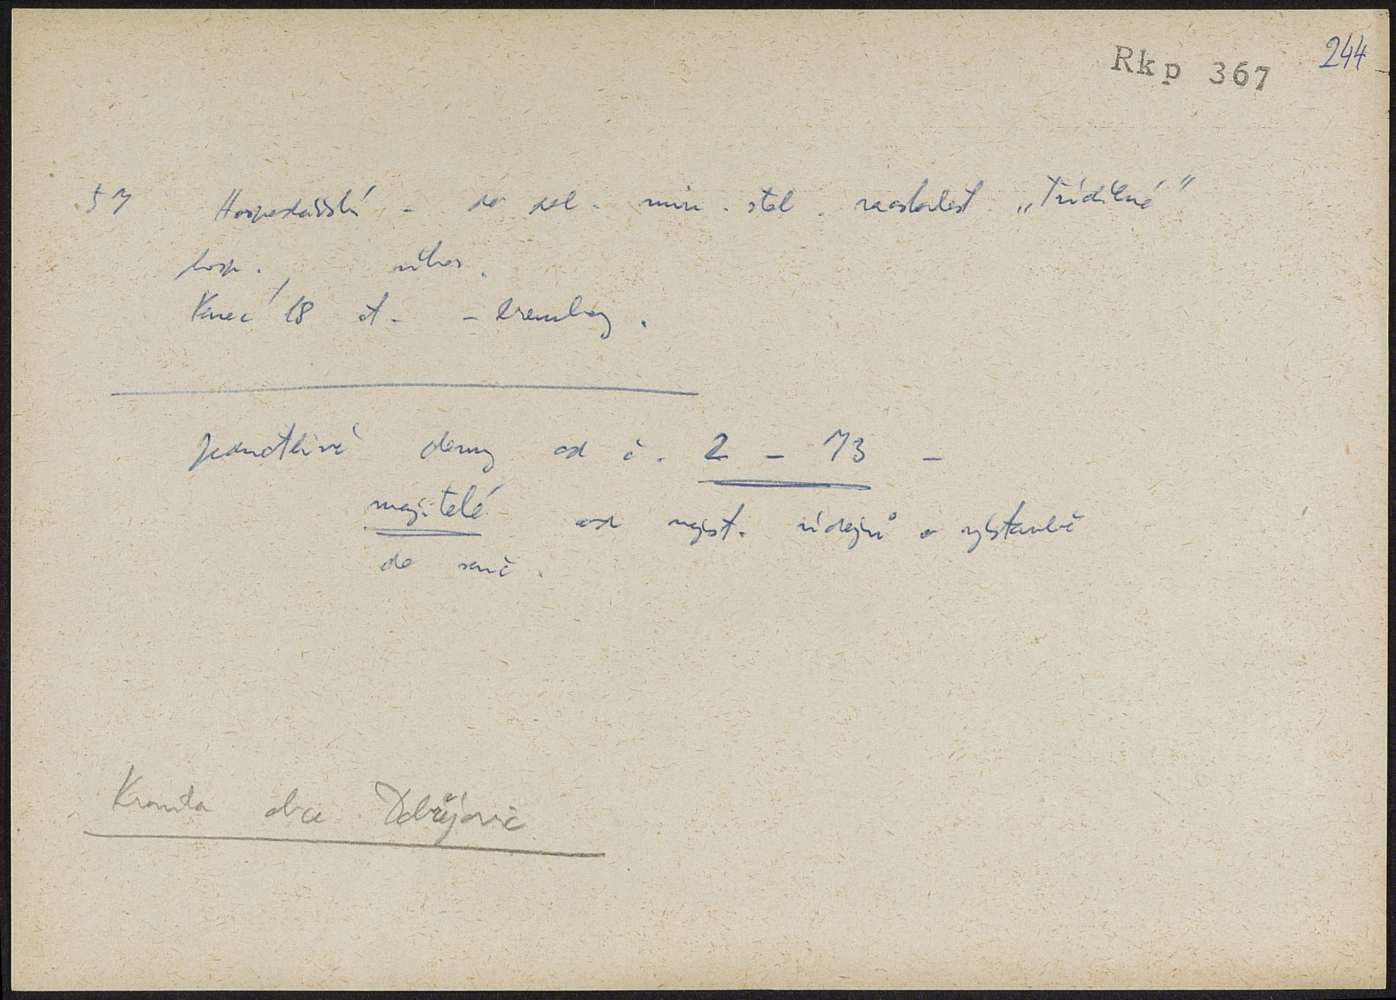 Rkp 367 244
57 Hospodářství - do pol. min. stol. zaostalost „Třídílné"
hosp. úhor.
Konec 18 st. - brambory.
Jednotlivé domy od č. 2 - 73 -
majitelé od nejst. údajů o výstavbě
do souč.
Kronika obce Dobřejovic